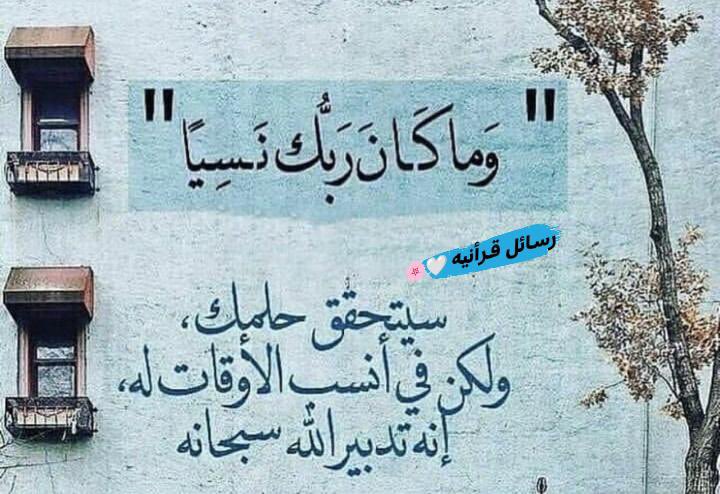 " وَما كَانَ رَبُّك نَسِيًا "
رسائل قرأنيه 🤍🌸
سيتحقق حلمك،
ولكن في أنسب الأوقات له،
إنه تدبير الله سبحانه